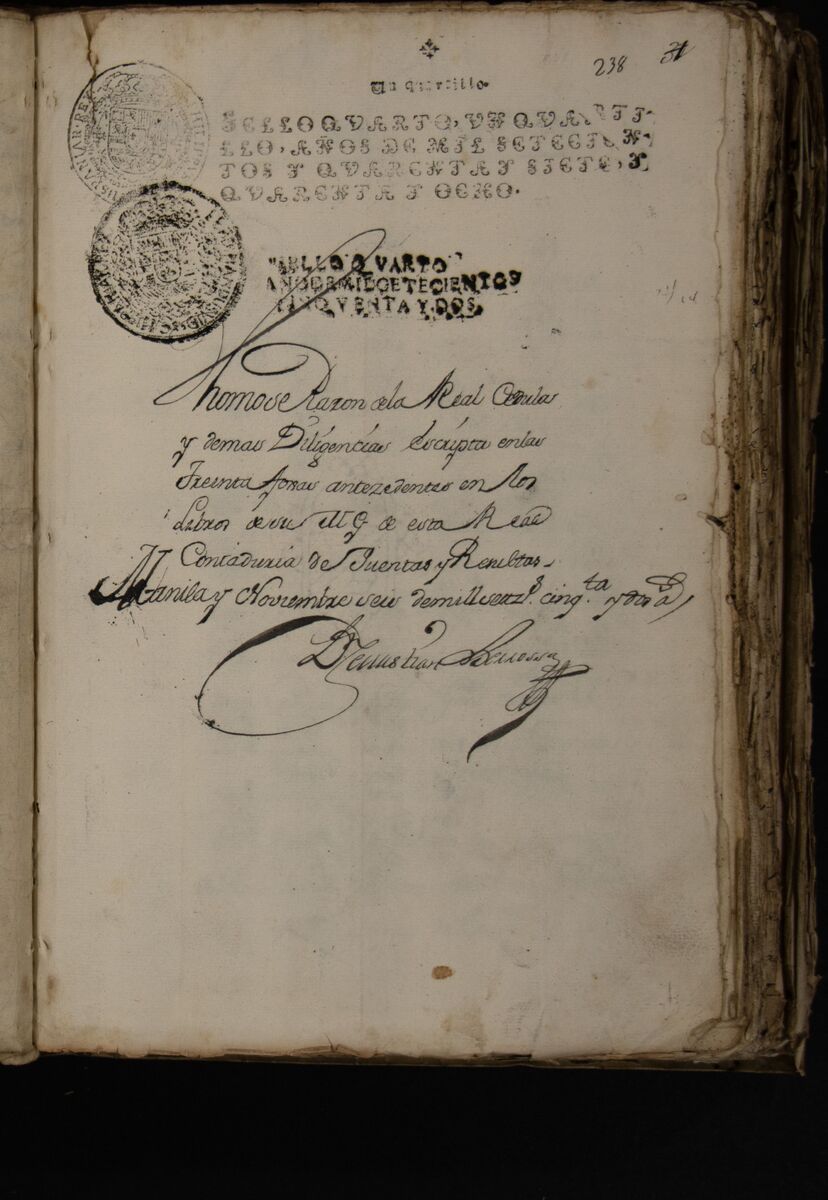 238 31
Un quartillo.
SELLO QVARTO, VN QVARTI-
LLO, AÑOS DE MIL SETECIEN-
TOS Y QVARENTA Y SIETE, Y
QVARENTA Y OCHO.
SELLO QVARTO
ANO DE MIL CETECIENTOS
CINQVENTA Y DOS.
Thomose Razon de la Real Cedulas
y demas Diligencias Escripta en las
Treinta foxas antezedentes en los
Libros de su M G de esta Real
Contaduria de Quentas y Resultas.
Manila y Noviembre seis de mill setez.s cinq.ta y dos a.s